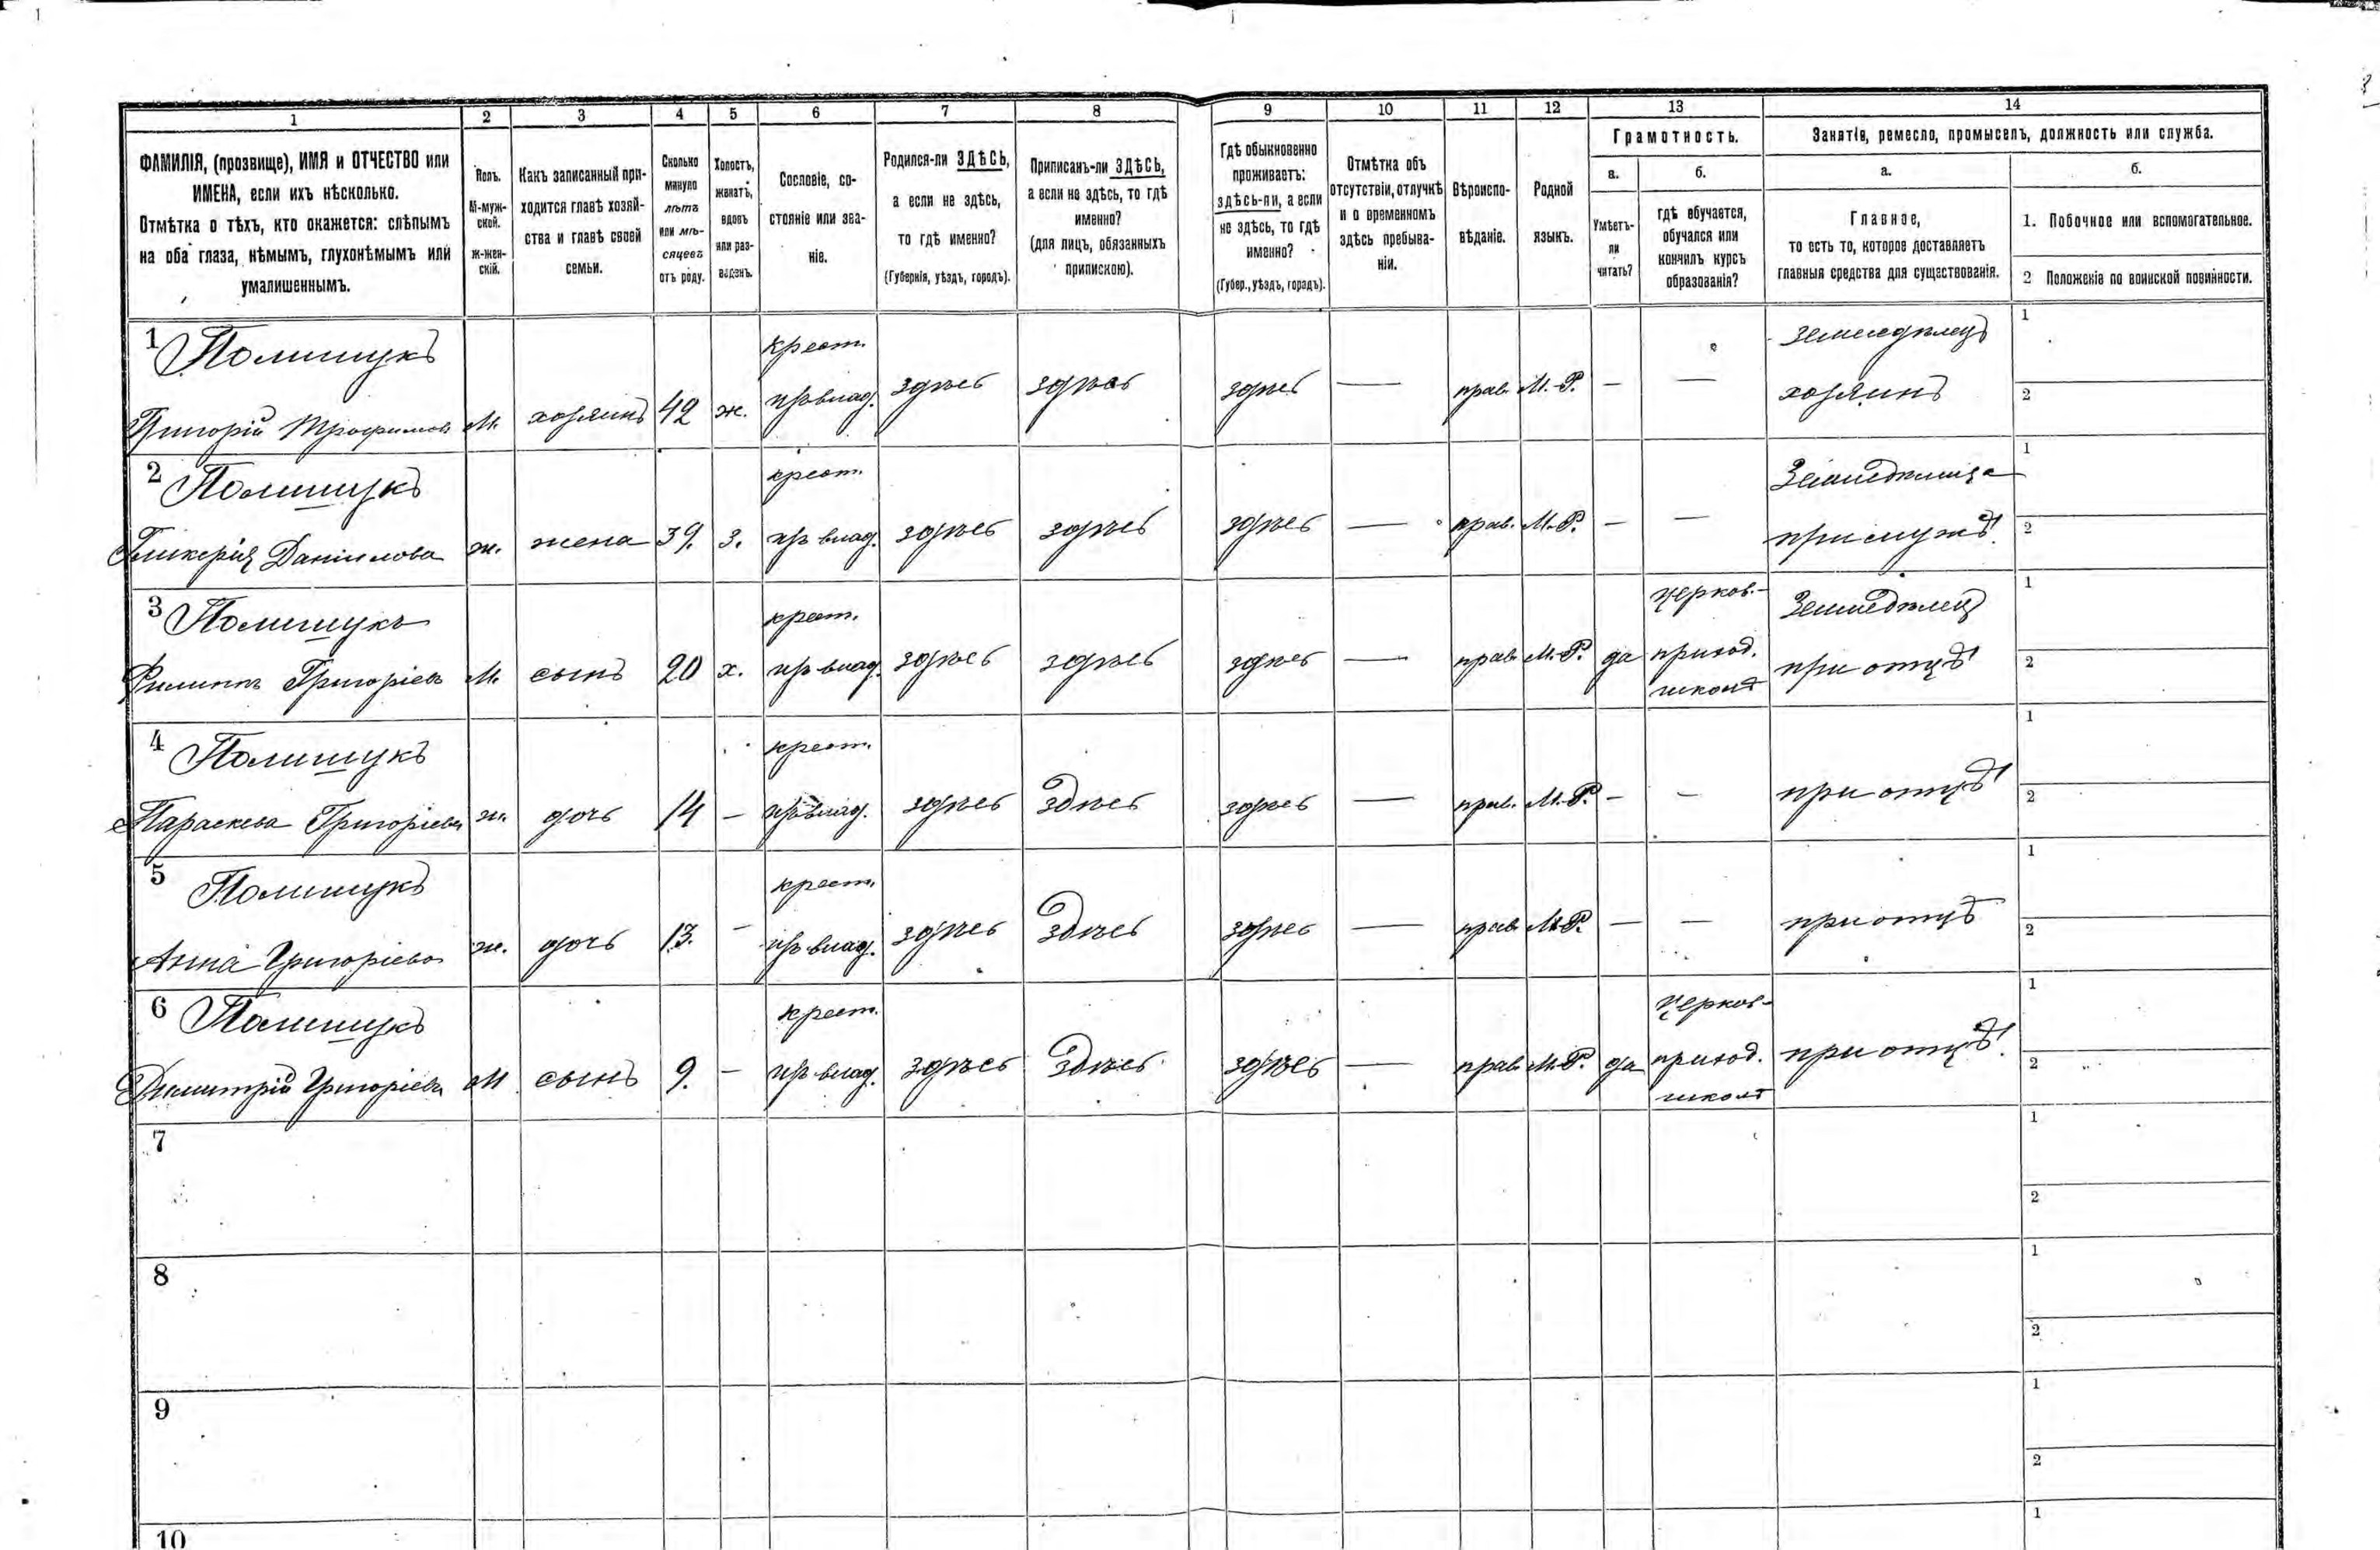 1 2 3 4 5 6 7 8 9 10 11 12 13 14
ФАМИЛІЯ, (прозвище), ИМЯ и ОТЧЕСТВО или
ИМЕНА, если ихъ нѣсколько.
Отмѣтка о тѣхъ, кто окажется: слѣпымъ
на оба глаза, нѣмымъ, глухонѣмымъ или
умалишеннымъ.
Полъ.
М-муж-
ской.
Ж-жен-
скій.
Какъ записанный при-
ходится главѣ хозяй-
ства и главѣ своей
семьи.
Сколько
минуло
лѣтъ
или мѣ-
сяцевъ
отъ роду.
Холостъ,
женатъ,
вдовъ
или раз-
веденъ.
Сословіе, со-
стояніе или зва-
ніе.
Родился-ли ЗДѢСЬ,
а если не здѣсь,
то гдѣ именно?
(Губернія, уѣздъ, городъ).
Приписанъ-ли ЗДѢСЬ,
а если не здѣсь, то гдѣ
именно?
(для лицъ, обязанныхъ
припискою).
Гдѣ обыкновенно
проживаетъ:
здѣсь-ли, а если
не здѣсь, то гдѣ
именно?
(Губер., уѣздъ, городъ).
Отмѣтка объ
отсутствіи, отлучкѣ
и о временномъ
здѣсь пребыва-
ніи.
Вѣроиспо-
вѣданіе.
Родной
языкъ.
Грамотность.
а.
Умѣетъ-
ли
читать?
б.
гдѣ обучается,
обучался или
кончилъ курсъ
образованія?
Занятіе, ремесло, промыселъ, должность или служба.
а.
Главное,
то есть то, которое доставляетъ
главныя средства для существованія.
б.
1. Побочное или вспомогательное.
2 Положеніе по воинской повинности.
1 Полищукъ крест. земледѣлецъ 1
Григорій Трофимовъ М. хозяинъ 42 ж. из влад. здѣсь здѣсь здѣсь — прав. М.-Р. — — хозяинъ 2
2 Полищукъ крест. Земледѣлица 1
Гликерія Даниилова ж. жена 39. з. из влад. здѣсь здѣсь здѣсь — прав. М.-Р. — — при мужѣ. 2
3 Полищукъ крест. церков.- Земледѣлец 1
Филиппъ Григоріевъ М. сынъ 20 х. из влад. здѣсь здѣсь здѣсь — прав. М.-Р. да приход. при отцѣ 2
школѣ
4 Полищукъ крест. 1
Параскева Григоріева ж. дочь 14 — из влад. здѣсь здѣсь здѣсь — прав. М.-Р. — — при отцѣ 2
5 Полищукъ крест. 1
Анна Григоріева ж. дочь 13. — из влад. здѣсь здѣсь здѣсь — прав. М.-Р. — — при отцѣ 2
6 Полищукъ крест. церков- 1
Димитрій Григоріевъ М сынъ 9. — из влад. здѣсь здѣсь здѣсь — прав. М.-Р. да приход. при отцѣ. 2
школѣ
7 1
2
8 1
2
9 1
2
10 1